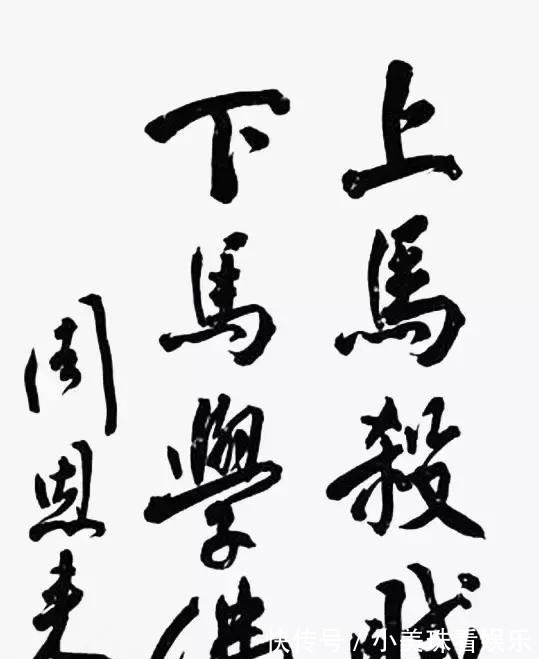 上馬殺賊
下馬學佛
周恩来
快传号／小美珠看娱乐